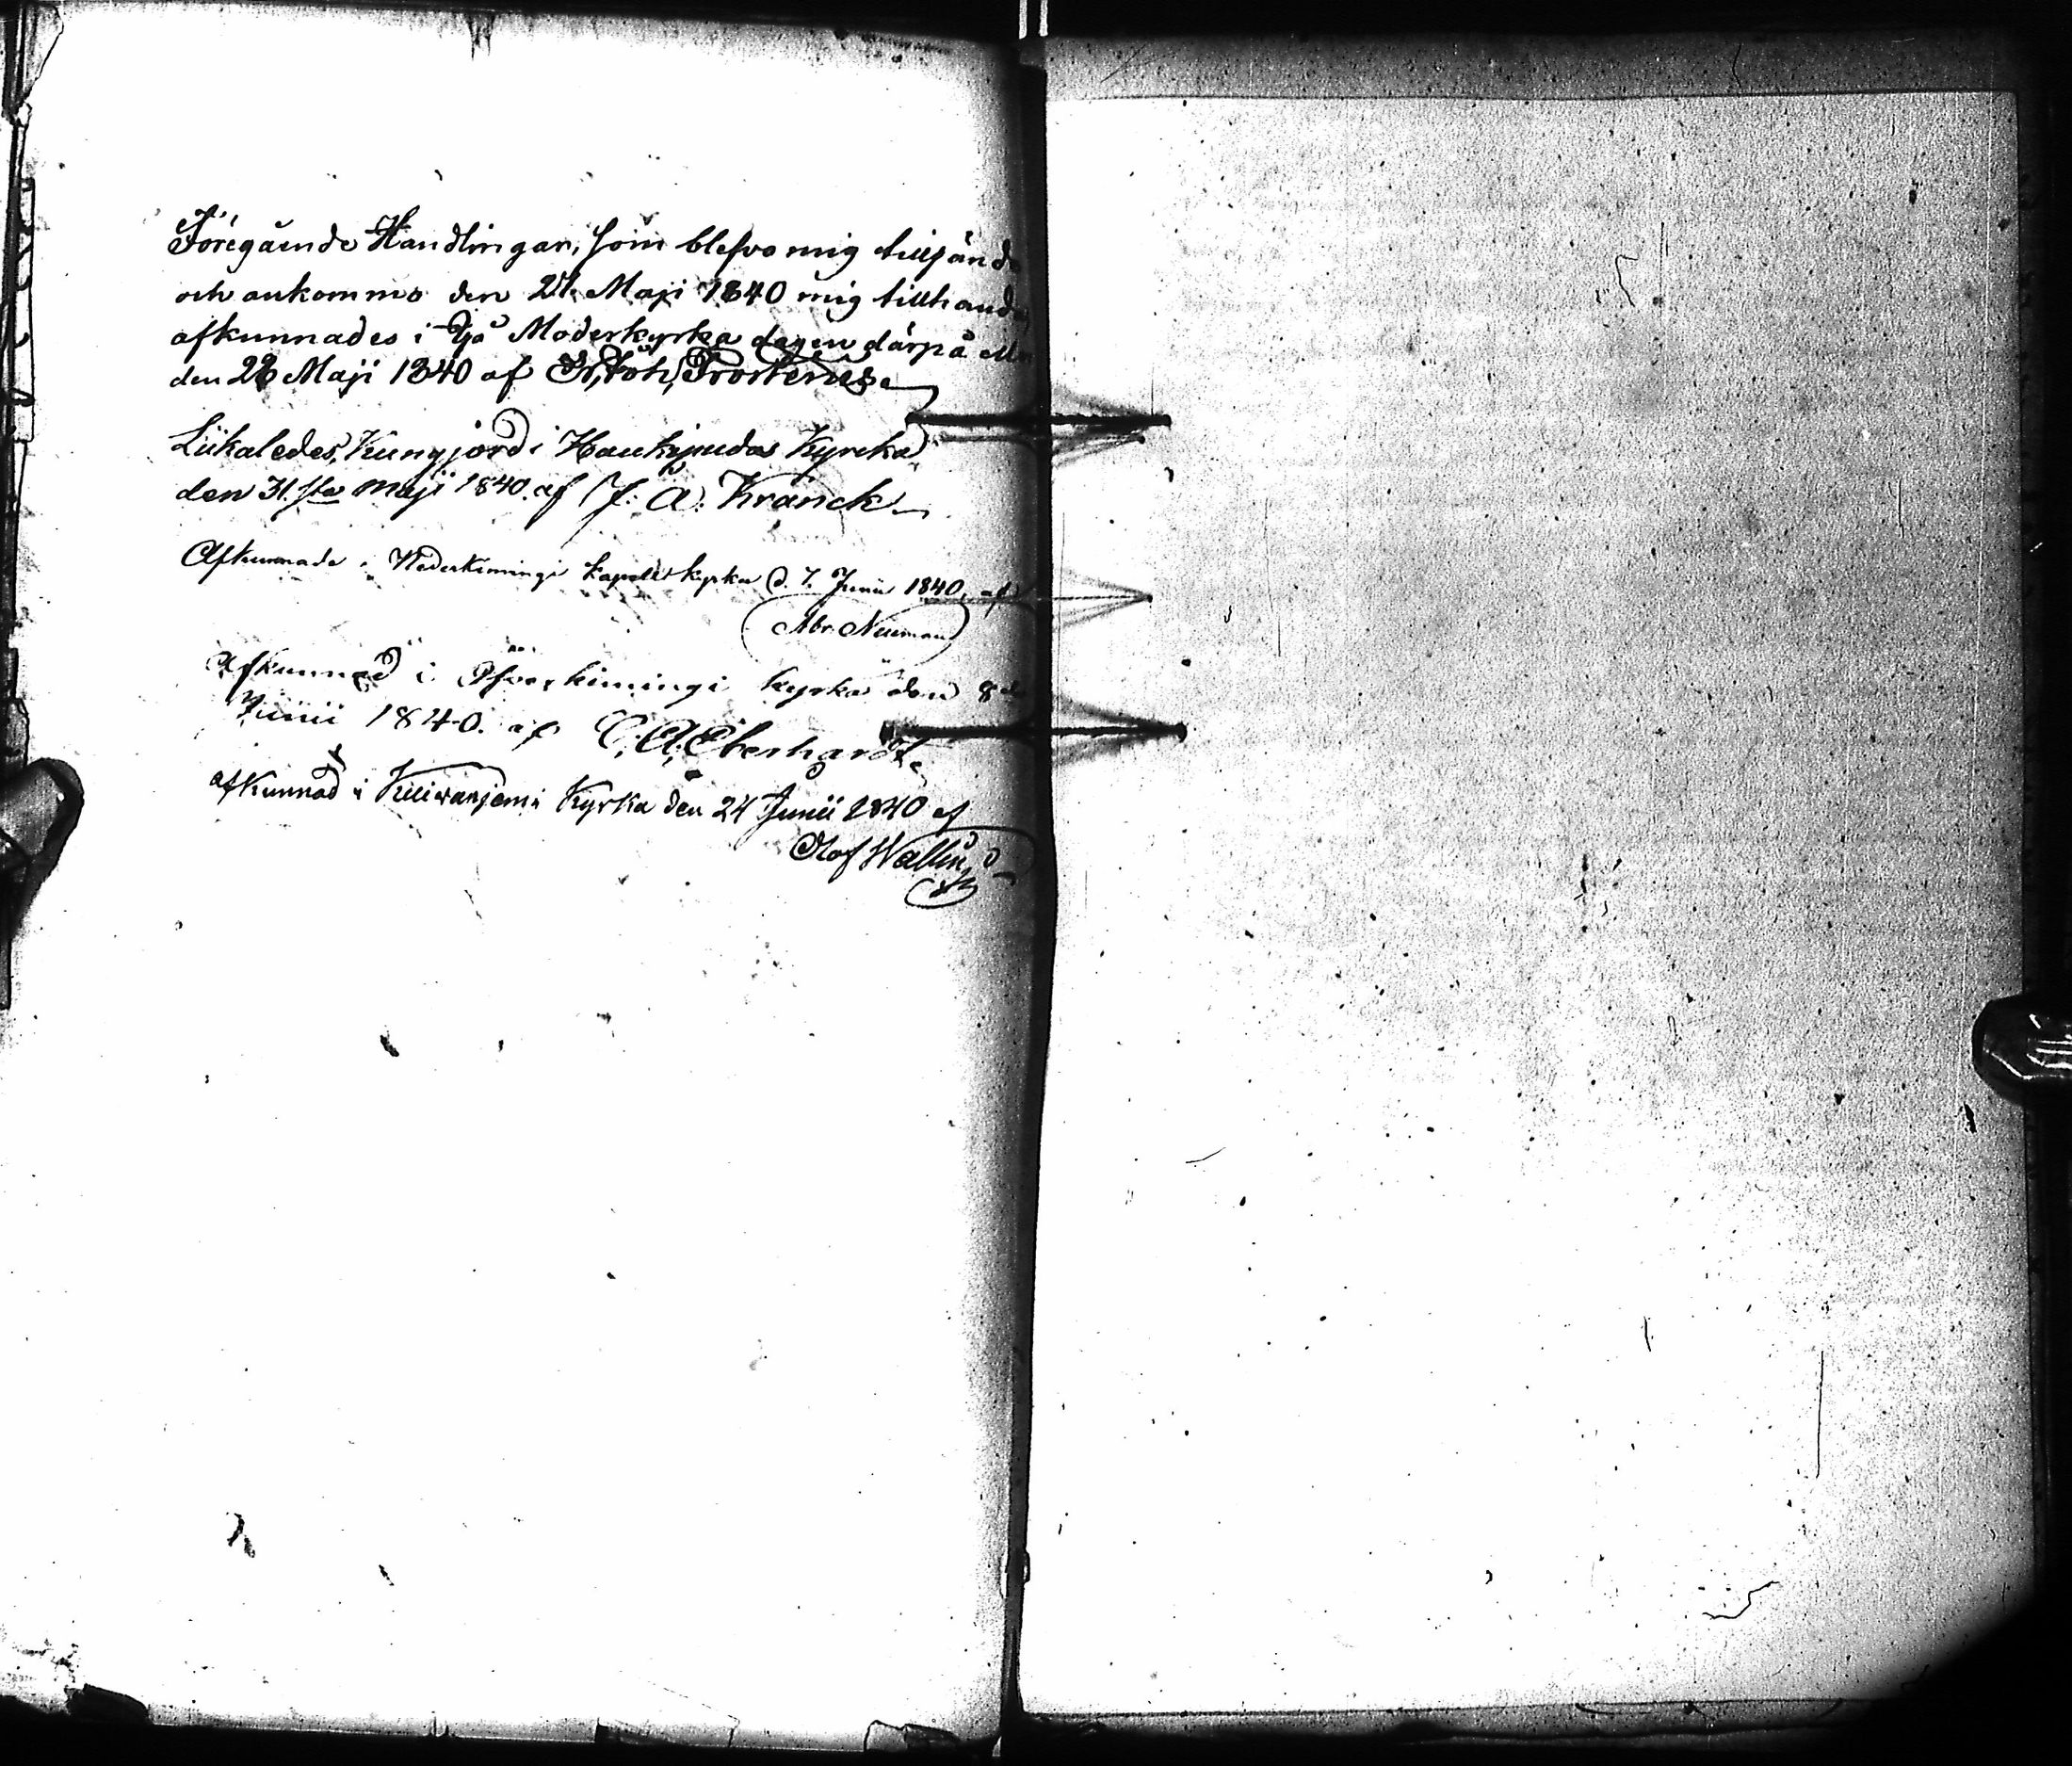 Föregående Handlingar, som blefvo mig tillsände
och ankommo den 27. Maji 1840 mig tillhanda,
afkunnades i Ijo Moderkyrka dagen därpå eller
den 28 Maji 1840 af Joh, Frosterus.
Likaledes, Kungjord i Haukipudas Kyrcka
den 31.ste Maji 1840. af J: A: Kranck
Afkunnade i Nederkimingi kapells kyrka d. 7. Junii 1840, af
Abr. Neuman
Afkunnad i Öfverkimingi kyrka den 8de
Junii 1840. af C. A. Eberhardt.
afkunnad i Kuiwaniemi Kyrka den 24 Junii 1840 af
Olof Wallin